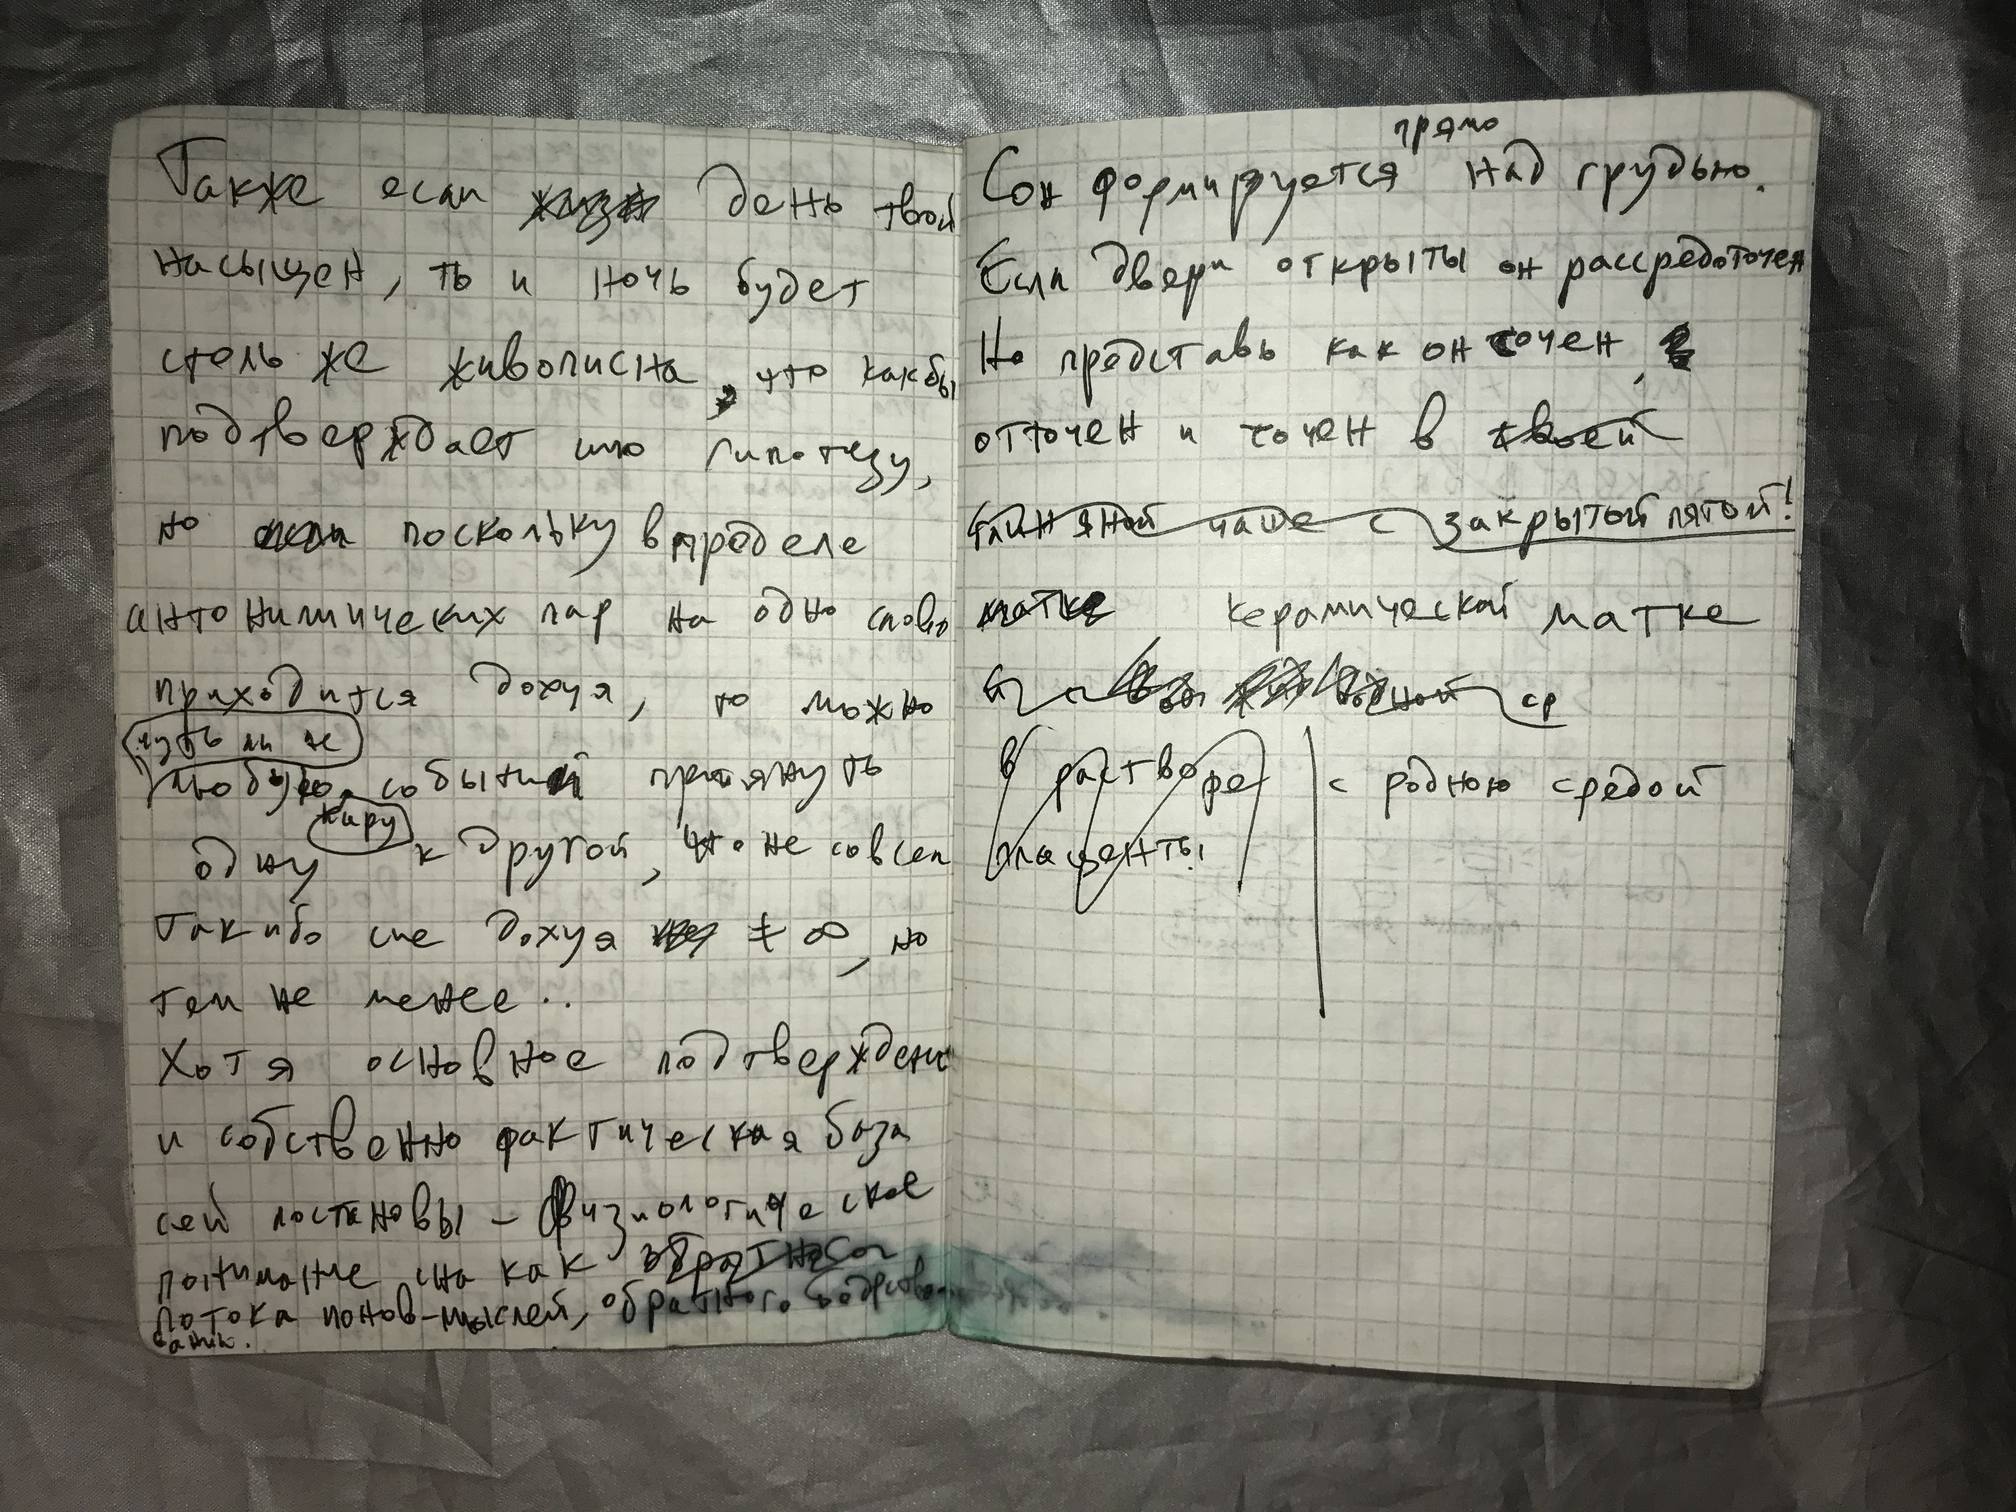 Также если день твой
насыщен, то и ночь будет
столь же живописна, что как бы
подтверждает мою гипотезу,
но поскольку в пределе
антонимических пар на одно слово
приходится дохуя, то можно
чуть ли не
любую событий притянуть
пару
одну к другой, что не совсем
так ибо сие дохуя ≠ ∞, но
тем не менее..
Хотя основное подтвержден
и собственно фактическая база
сей постановы – физиологическое
понимание сна как
потока ионов-мыслей, обратного
прямо
Сон формируется над грудью.
Если двери открыты он рассредоточен
Но представь как он точен,
отточен и точен в твоей
глиняной чаше с закрытой пятой!
матке керамической матке
ср
в растворе с родною средой
плаценты